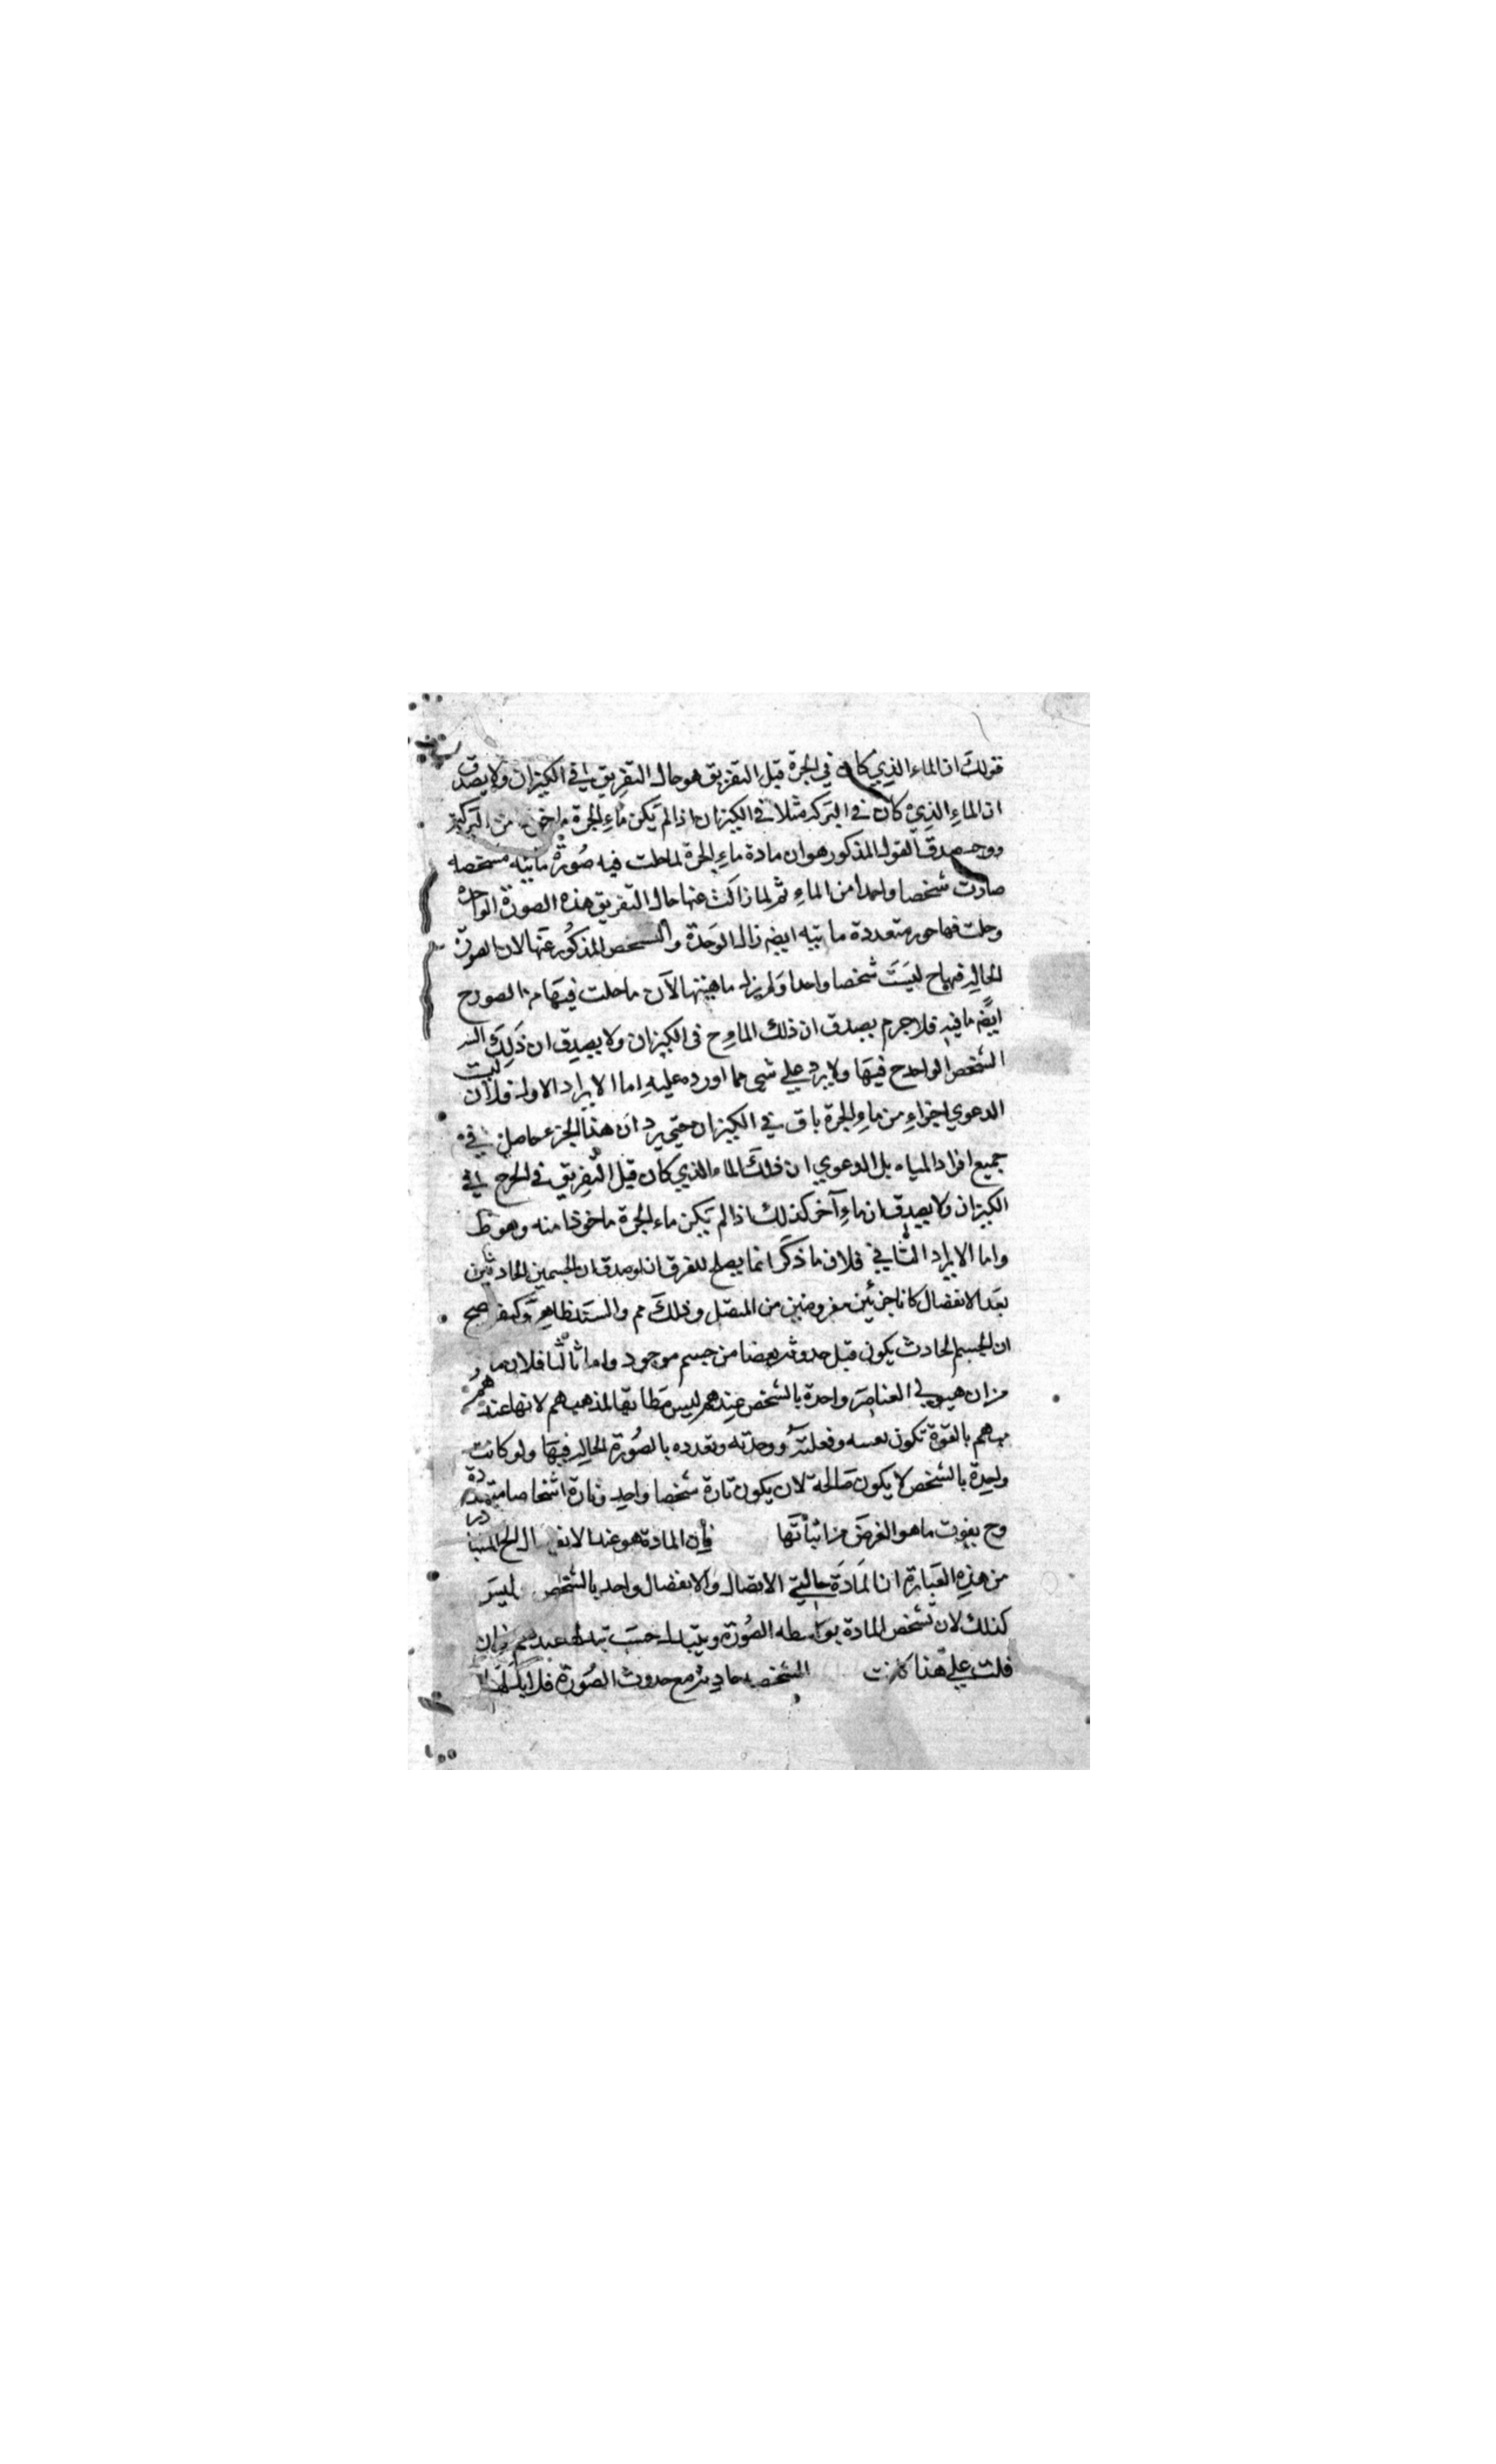 قولك ان الماء الذي كان في الجرة قبل التفريق هو حال التفريق في الكيزان ولا يصدق
ان الماء الذي كان في البركة مثلا في الكيزان اذا لم يكن ماء الجرة من البركة
ووجه صدق القول المذكور هو ان مادة ماء الجرة لما حلت فيه صورة مائيه مشخصه
صارت شخصا واحدا من الماء ثم لما زالت عنها حال التفريق هذه الصورة الواحدة
وحلت فيها صور متعددة مائيه ايضه زال الوحدة والتشخص المذكور عنها لان الصورة
الحاله فيها ح ليست شخصا واحدا ولم يزل ماهيتها لان ما حلت فيها من الصور ح
ايضه مافيه فلا جرم يصدق ان ذلك الماء ح في الكيزان ولا يصدق ان ذلك
الشخص الواحد ح فيها ولا يرد علي شي مما اورده عليه اما الايراد الاول فلان ليت
الدعوي اجزاء من ماء الجرة باق في الكيزان حتي يرد ان هذا الجزء حاصل في
جميع افراد المياه بل الدعوي ان ذلك الماء الذي كان قبل التفريق في الجرح في
الكيزان ولا يصدق ان ماء آخر كذلك اذا لم يكن ماء الجرة ماخوذا منه وهو ظ
واما الايراد الثاني فلان ما ذكر انما يصلح للفرق ان لو صدق ان الجسمين الحادثين
بعد الانفصال كانا جزئين مفروضين من المتصل وذلك مم والسند ظاهر وكيف صح
ان الجسم الحادث يكون قبل حدوثه بعضا من جسم موجود واما ثالثا فلان ما
من ان هيولي العناصر واحدة بالشخص عندهم ليس مطابقا لمذهبهم لانها عندهم
مبهم بالقوة تكون نفسه وفعليته ووحدته وتعدده بالصورة الحاله فيها ولو كانت
واحدة بالشخص لا يكون صالحة لان يكون تارة شخصا واحد وتارة اشخاصا متعددة
وح يفوت ما هو الغرض من اثباتها فان المادة هو عند الح المتبادر
من هذه العبارة ان المادة حالتي الاتصال والانفصال واحد بالشخص ليس
كذلك لان تشخص المادة بواسطه الصورة ويتبدل حسب تبدلها عندهم فان
قلت علي هذا كانت الشخصيه حادثه مع حدوث الصورة فلا